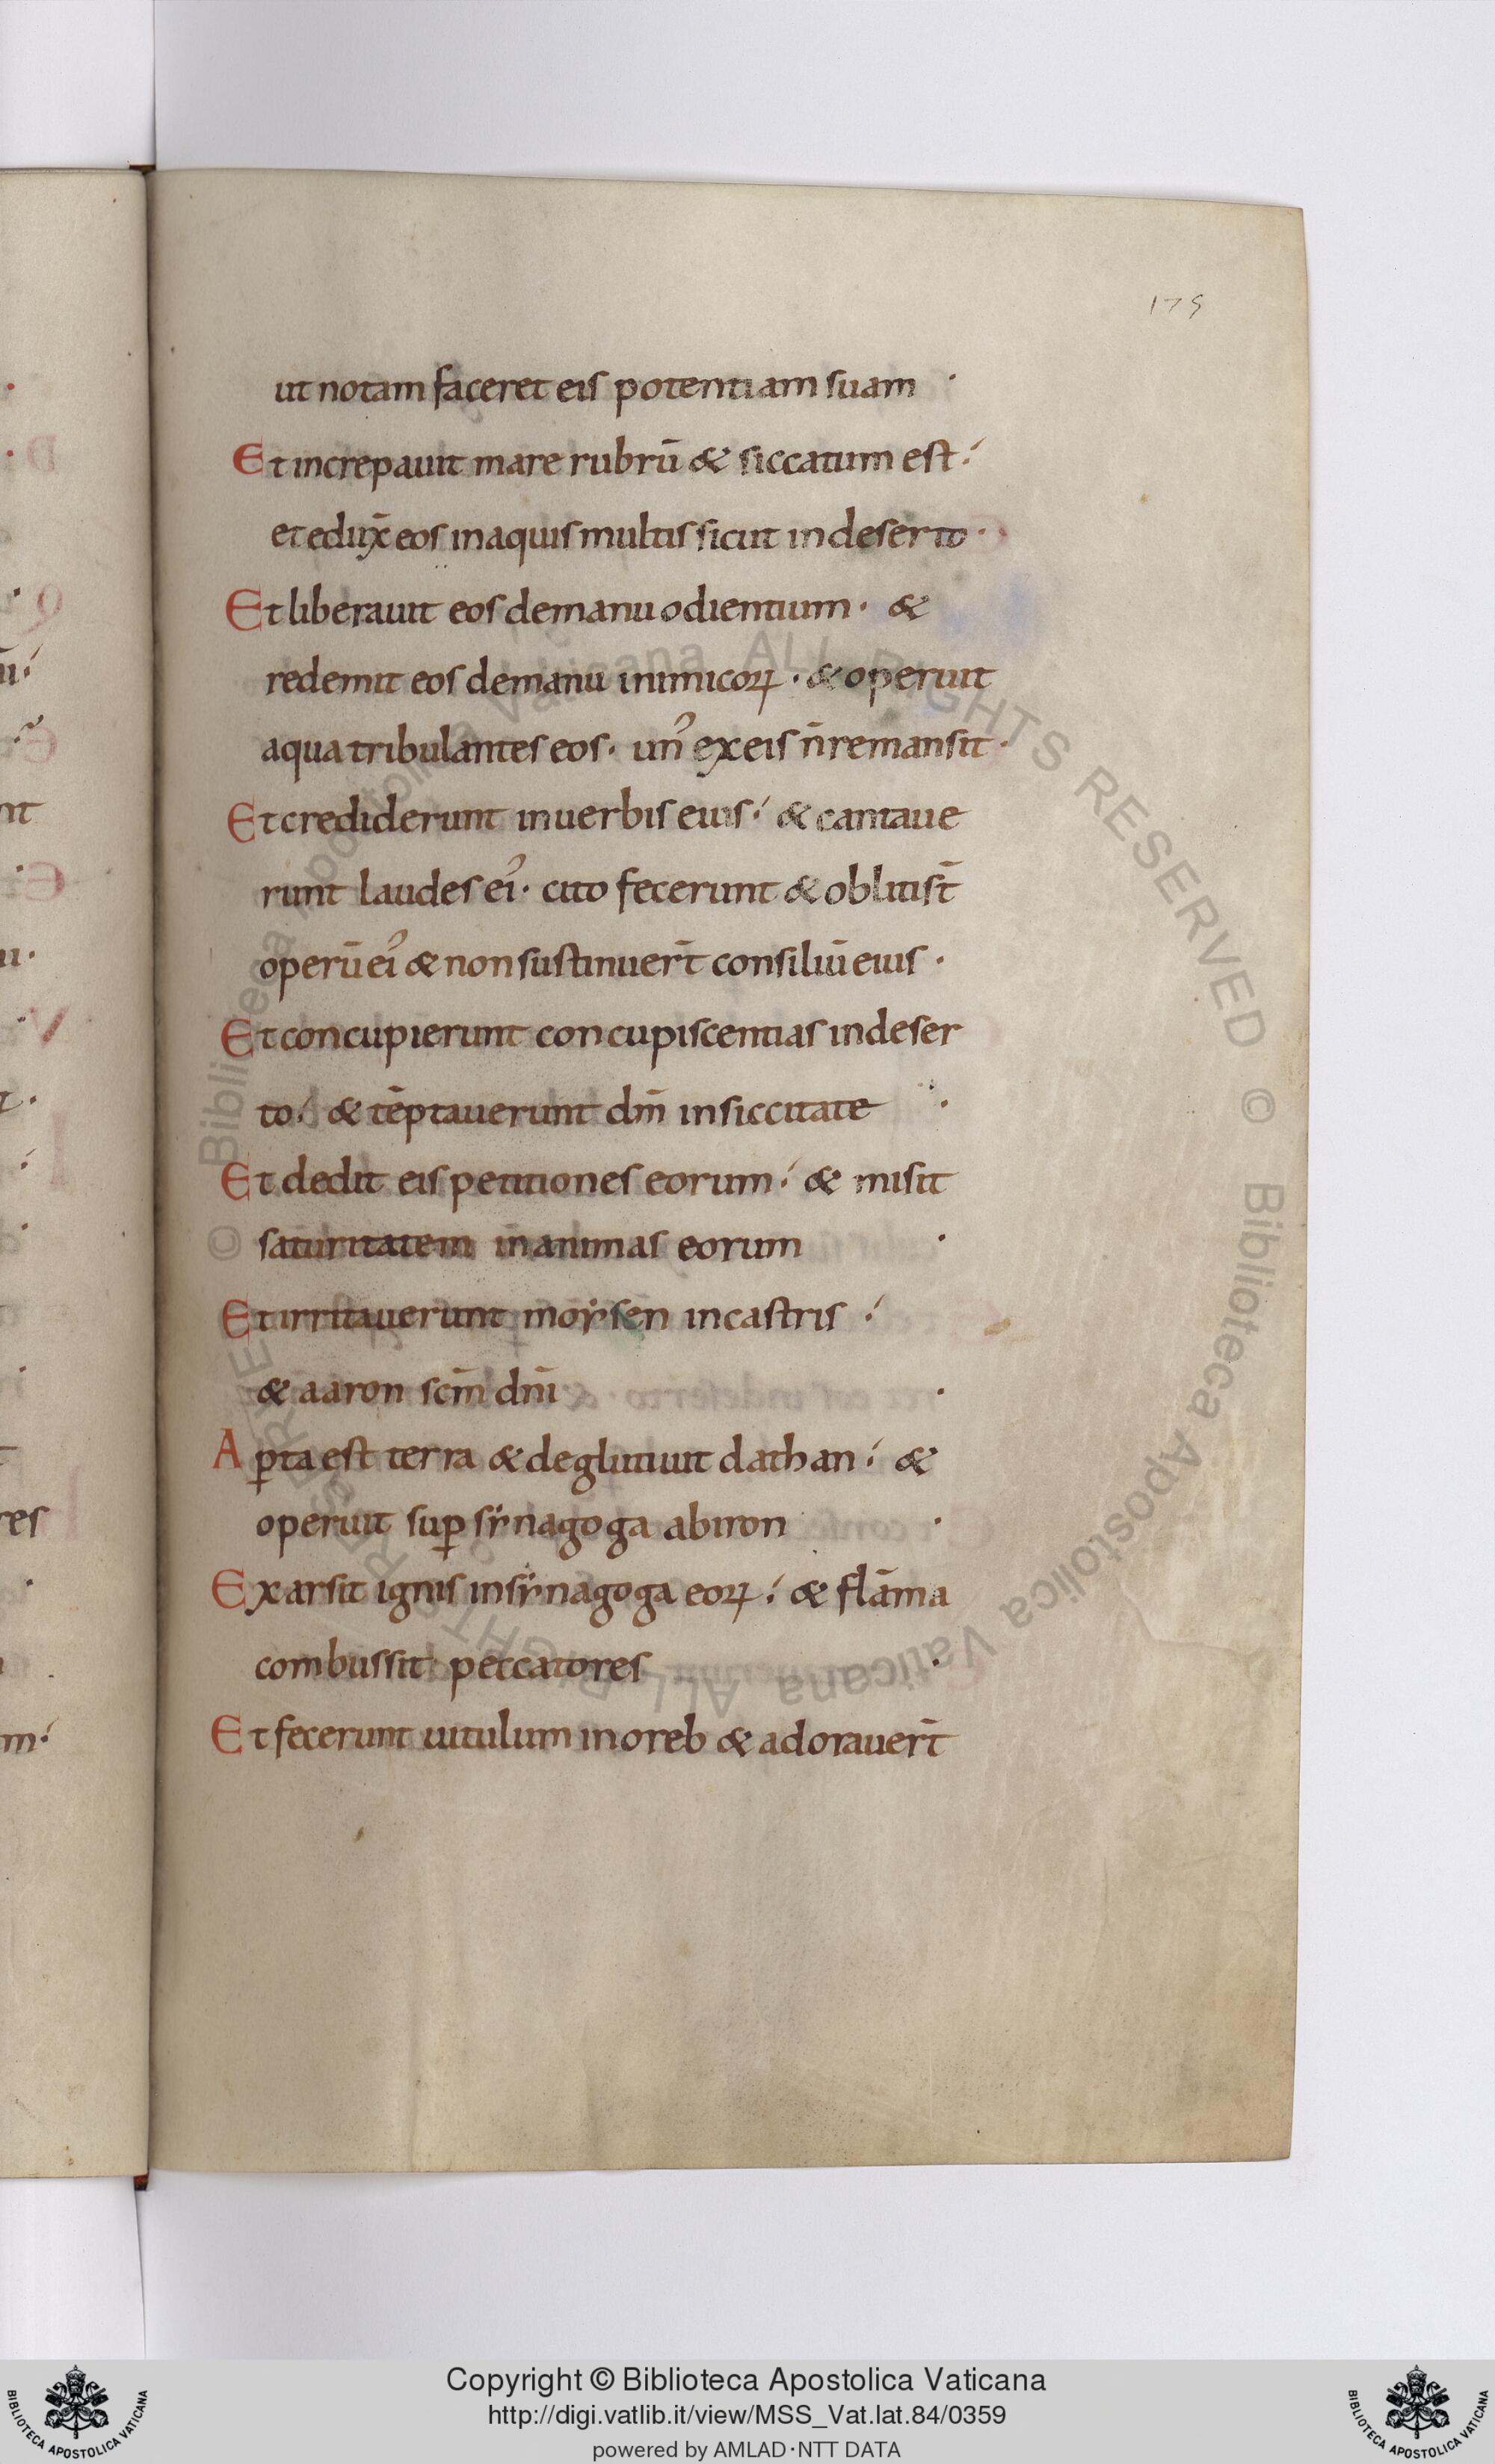 175
ut notam faceret eis potentiam suam ·
Et increpauit mare rubrū & siccatum est ·
et eduẋ eos in aquis multis sicut in deserto ·
Et liberauit eos de manu odientium · &
redemit eos de manu inimicoꝝ · & operuit
aqua tribulantes eos · un᾽ ex eis n̄ remansit ·
Et crediderunt in uerbis eius · & cantaue
runt laudes ei᾽ · cito fecerunt & obliti st̄
operū ei᾽ & non sustinuer̄t consiliū eius ·
Et concupierunt concupiscentias in deser
to · & tēptauerunt dm̄ in siccitate ·
Et dedit eis petitiones eorum · & misit
saturitatem in animas eorum ·
Et irritauerunt moẏsen in castris ·
& aaron scm̄ dn̄i ·
Aꝑta est terra & deglutiuit dathan · &
operuit suꝑ sẏnagoga abiron ·
Exarsit ignis in sẏnagoga eoꝝ · & flāma
combussit peccatores ·
Et fecerunt uitulum in oreb & adorauer̄t
Copyright © Biblioteca Apostolica Vaticana
http://digi.vatlib.it/view/MSS_Vat.lat.84/0359
powered by AMLAD·NTT DATA